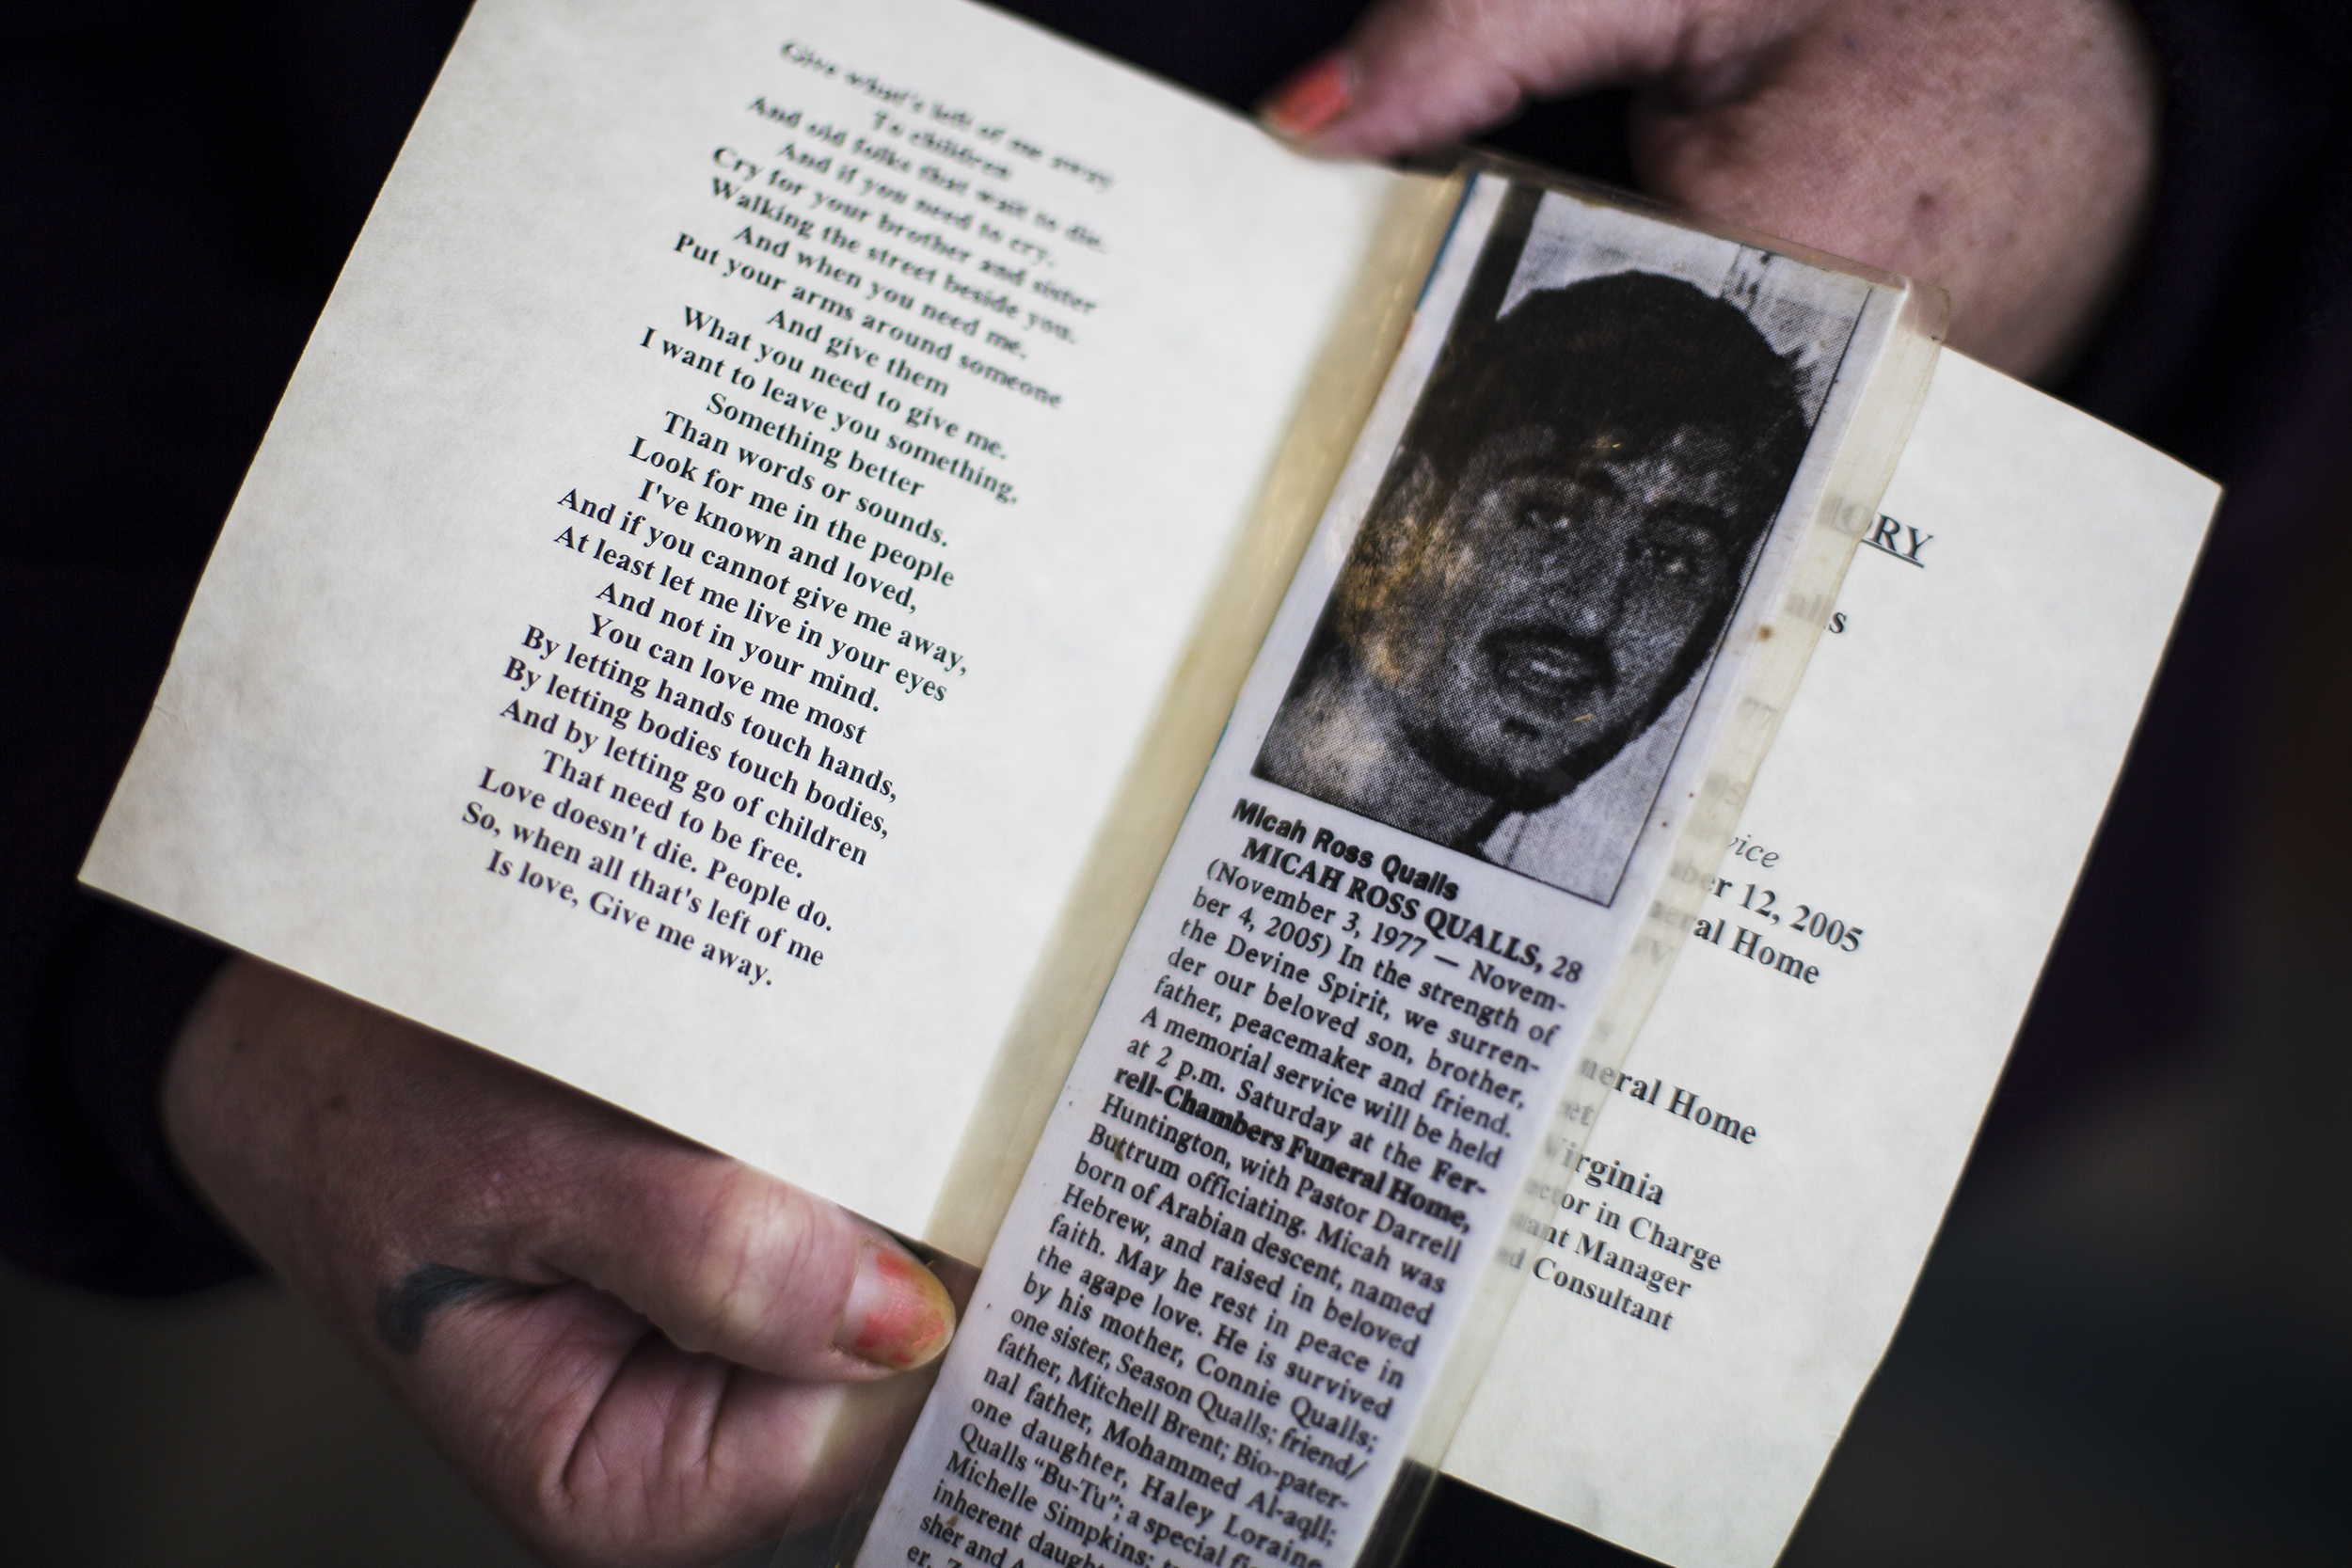 Give what's left of me away
To children
And old folks that wait to die.
And if you need to cry,
Cry for your brother and sister
Walking the street beside you.
And when you need me,
Put your arms around someone
And give them
What you need to give me.
I want to leave you something,
Something better
Than words or sounds.
Look for me in the people
I've known and loved,
And if you cannot give me away,
At least let me live in your eyes
And not in your mind.
You can love me most
By letting hands touch hands,
By letting bodies touch bodies,
And by letting go of children
That need to be free.
Love doesn't die. People do.
So, when all that's left of me
Is love, Give me away.
Micah Ross Qualls
MICAH ROSS QUALLS, 28
(November 3, 1977 — Novem-
ber 4, 2005) In the strength of
the Devine Spirit, we surren-
der our beloved son, brother,
father, peacemaker and friend.
A memorial service will be held
at 2 p.m. Saturday at the Fer-
rell-Chambers Funeral Home,
Huntington, with Pastor Darrell
Buttrum officiating. Micah was
born of Arabian descent, named
Hebrew, and raised in beloved
faith. May he rest in peace in
the agape love. He is survived
by his mother, Connie Qualls;
one sister, Season Qualls; friend/
father, Mitchell Brent; Bio-pater-
nal father, Mohammed Al-aqll;
one daughter, Haley Loraine
Qualls "Bu-Tu"; a special
Michelle Simpkins;
inherent
sher and
er.
ORY
alls
77
vice
ber 12, 2005
eral Home
neral Home
Virginia
ctor in Charge
tant Manager
ed Consultant